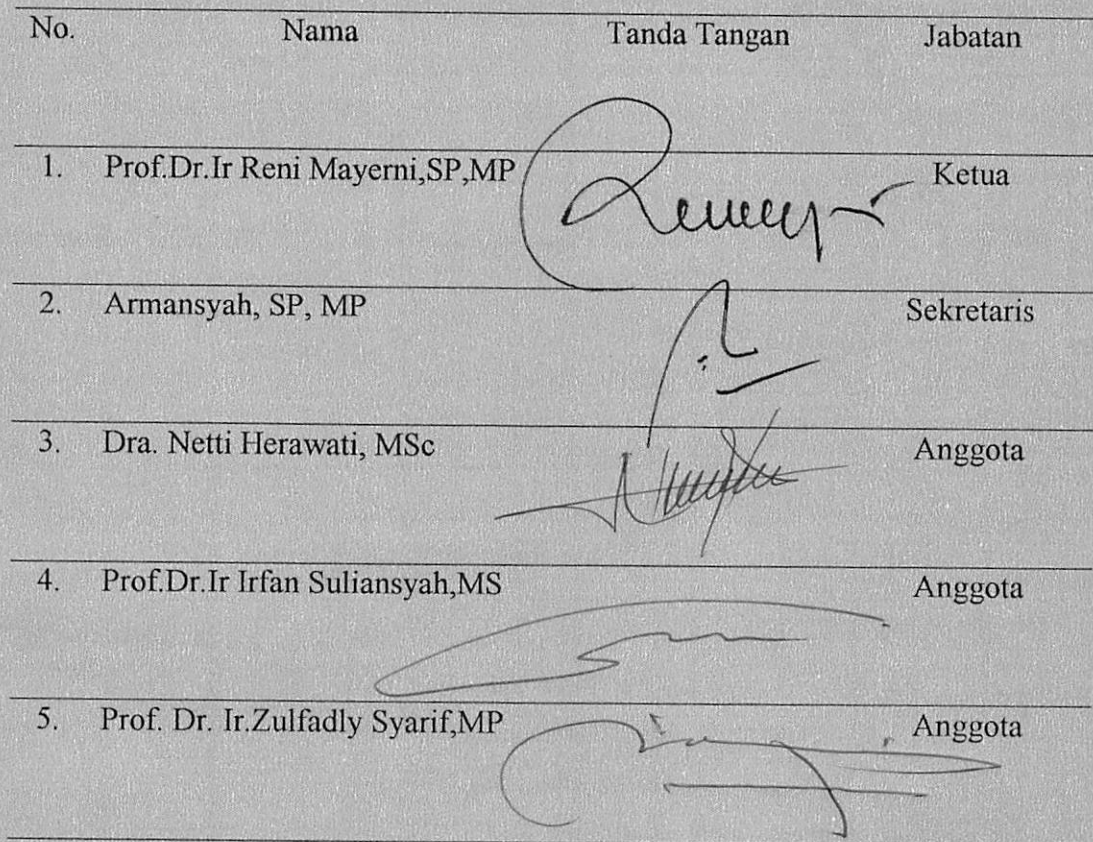 No. Nama Tanda Tangan Jabatan
1. Prof.Dr.Ir Reni Mayerni,SP,MP Ketua
2. Armansyah, SP, MP Sekretaris
3. Dra. Netti Herawati, MSc Anggota
4. Prof.Dr.Ir Irfan Suliansyah,MS Anggota
5. Prof. Dr. Ir.Zulfadly Syarif,MP Anggota